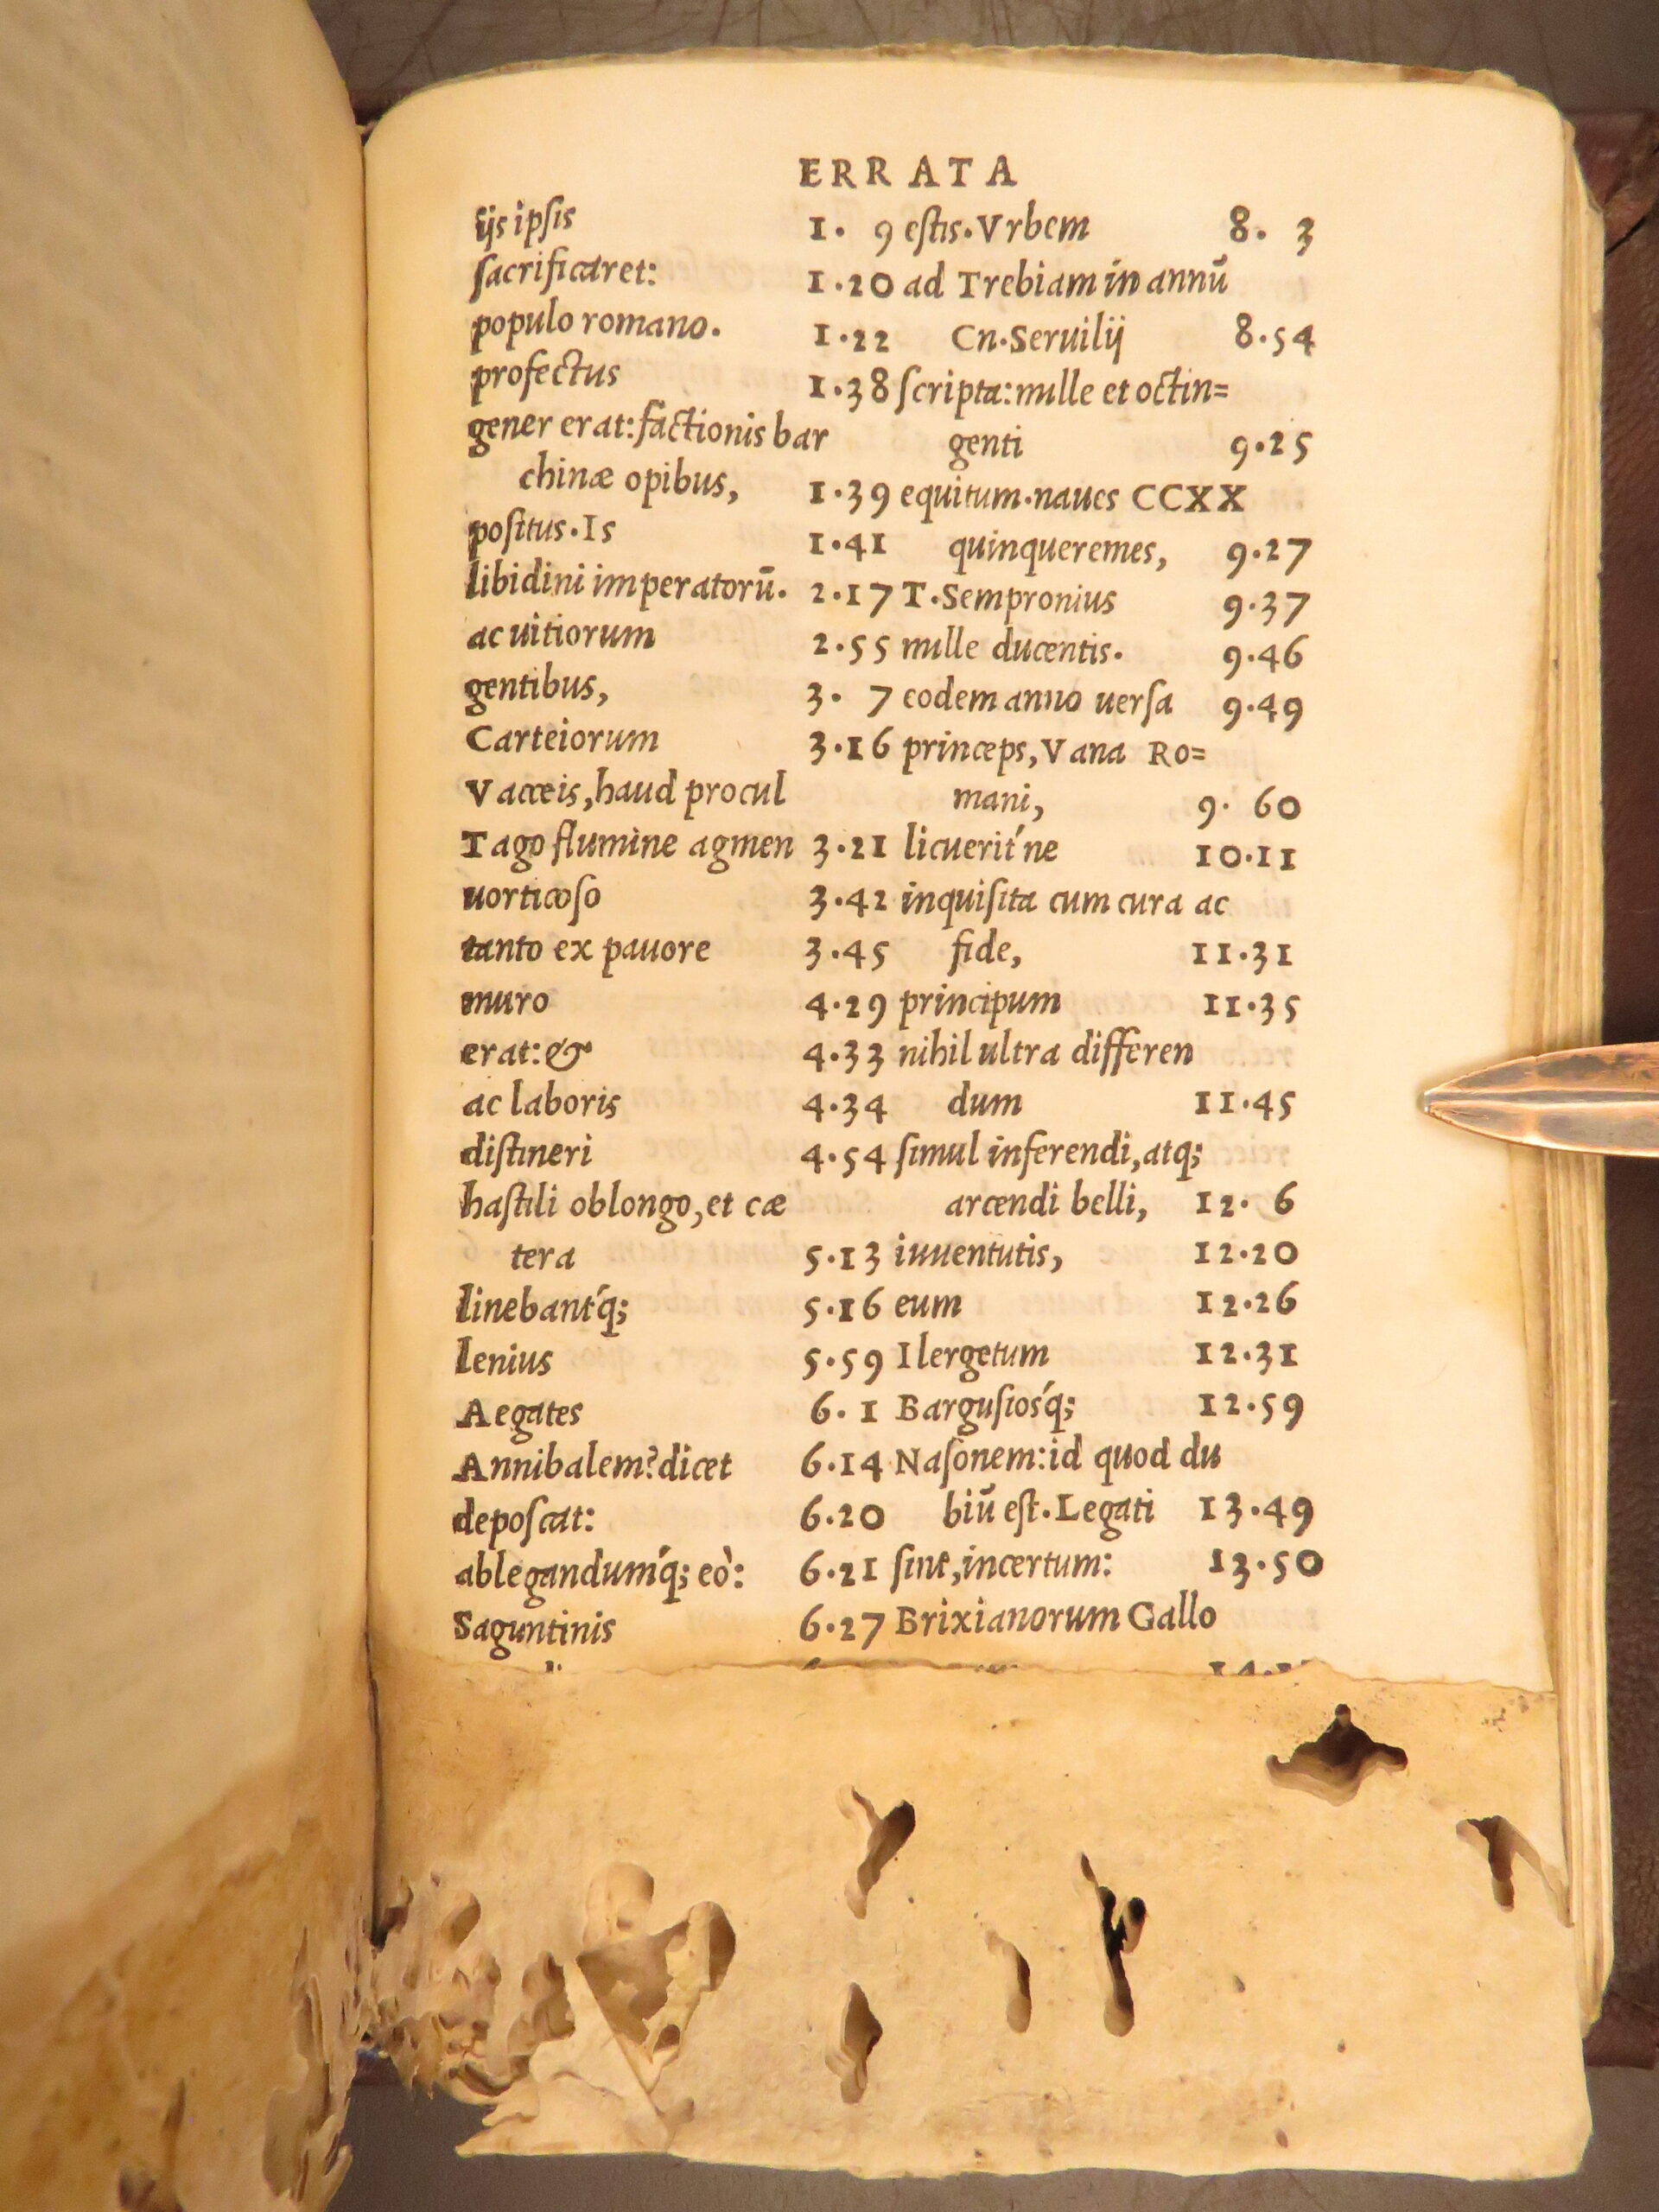 ERRATA
ijs ipſis 1. 9
ſacrificaret: 1.20
populo romano. 1.22
profectus 1.38
gener erat:factionis bar
chinæ opibus, 1.39
poſitus.Is 1.41
libidini imperatorū. 2.17
ac uitiorum 2.55
gentibus, 3. 7
Carteiorum 3.16
Vacceis,haud procul
Tago flumine agmen 3.21
uorticoſo 3.42
tanto ex pauore 3.45
muro 4.29
erat:& 4.33
ac laboris 4.34
diſtineri 4.54
haſtili oblongo,et cæ
tera 5.13
linebant́q; 5.16
lenius 5.59
Aegates 6. 1
Annibalem?dicet 6.14
depoſcat: 6.20
ablegandumq́; eò: 6.21
Saguntinis 6.27
eſtis.Vrbem 8. 3
ad Trebiam in annū
Cn.Seruilij 8.54
ſcripta:mille et octin=
genti 9.25
equitum.naues CCXX
quinqueremes, 9.27
T.Sempronius 9.37
mille ducentis. 9.46
eodem anno uerſa 9.49
princeps,Vana Ro=
mani, 9. 60
licuerit́ne 10.11
inquiſita cum cura ac
fide, 11.31
principum 11.35
nihil ultra differen
dum 11.45
ſimul inferendi,atq;
arcendi belli, 12. 6
iuuentutis, 12.20
eum 12.26
Ilergetum 12.31
Barguſiosq́; 12.59
Naſonem:id quod du
biū eſt.Legati 13.49
ſint,incertum: 13.50
Brixianorum Gallo